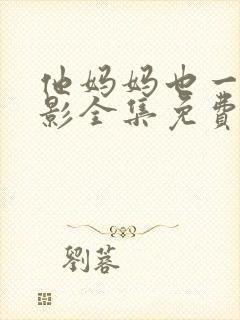 他妈妈也一
影全集免费
劉蓉